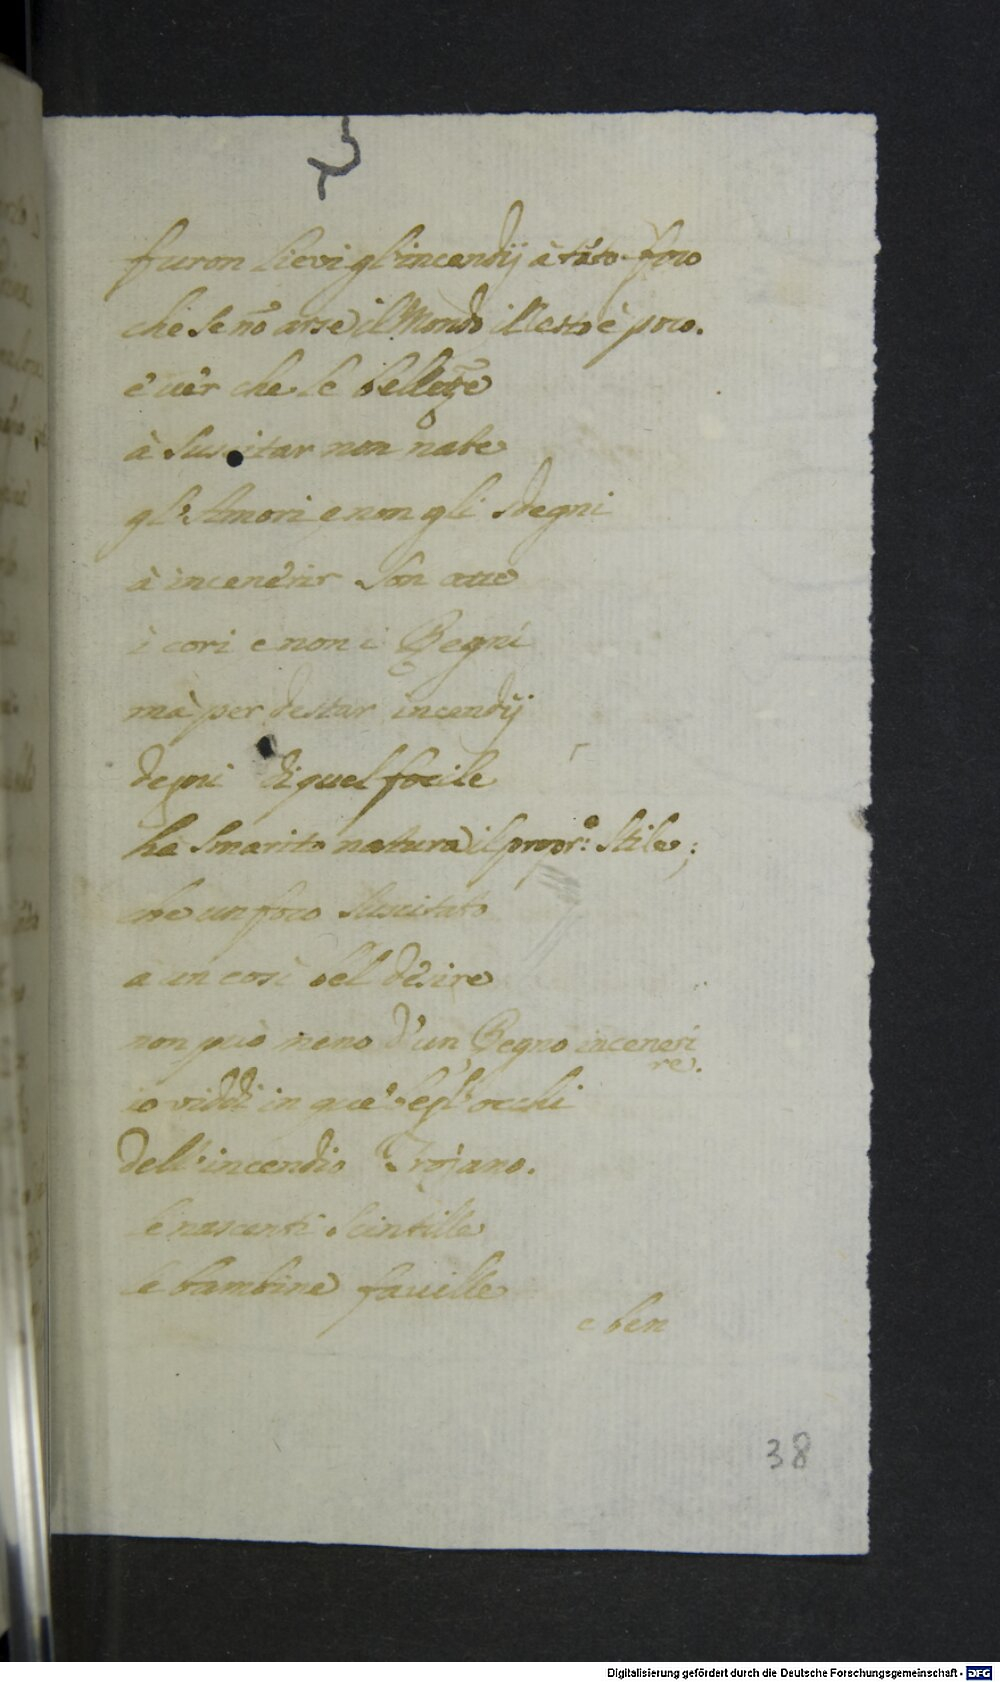 furon lievi gl'incendij à tāto foco
che se nō arse il Mondo il resto è poco.
e' uer che le bellezze
à suscitar non nate
gl'Amori, e non gli sdegni
à incenerir son atte
i cori e non i Regni
mà per destar incendij
degni di quel focile
ha smarito natura il propr.º stile;
che un foco suscitato
à un così bel desire
non può meno d'un Regno incenerire.
io viddi in què begl'occhi
dell'incendio Trojano.
le nascenti scintille
le bambine fauille
e ben
38
Digitalisierung gefördert durch die Deutsche Forschungsgemeinschaft - DFG